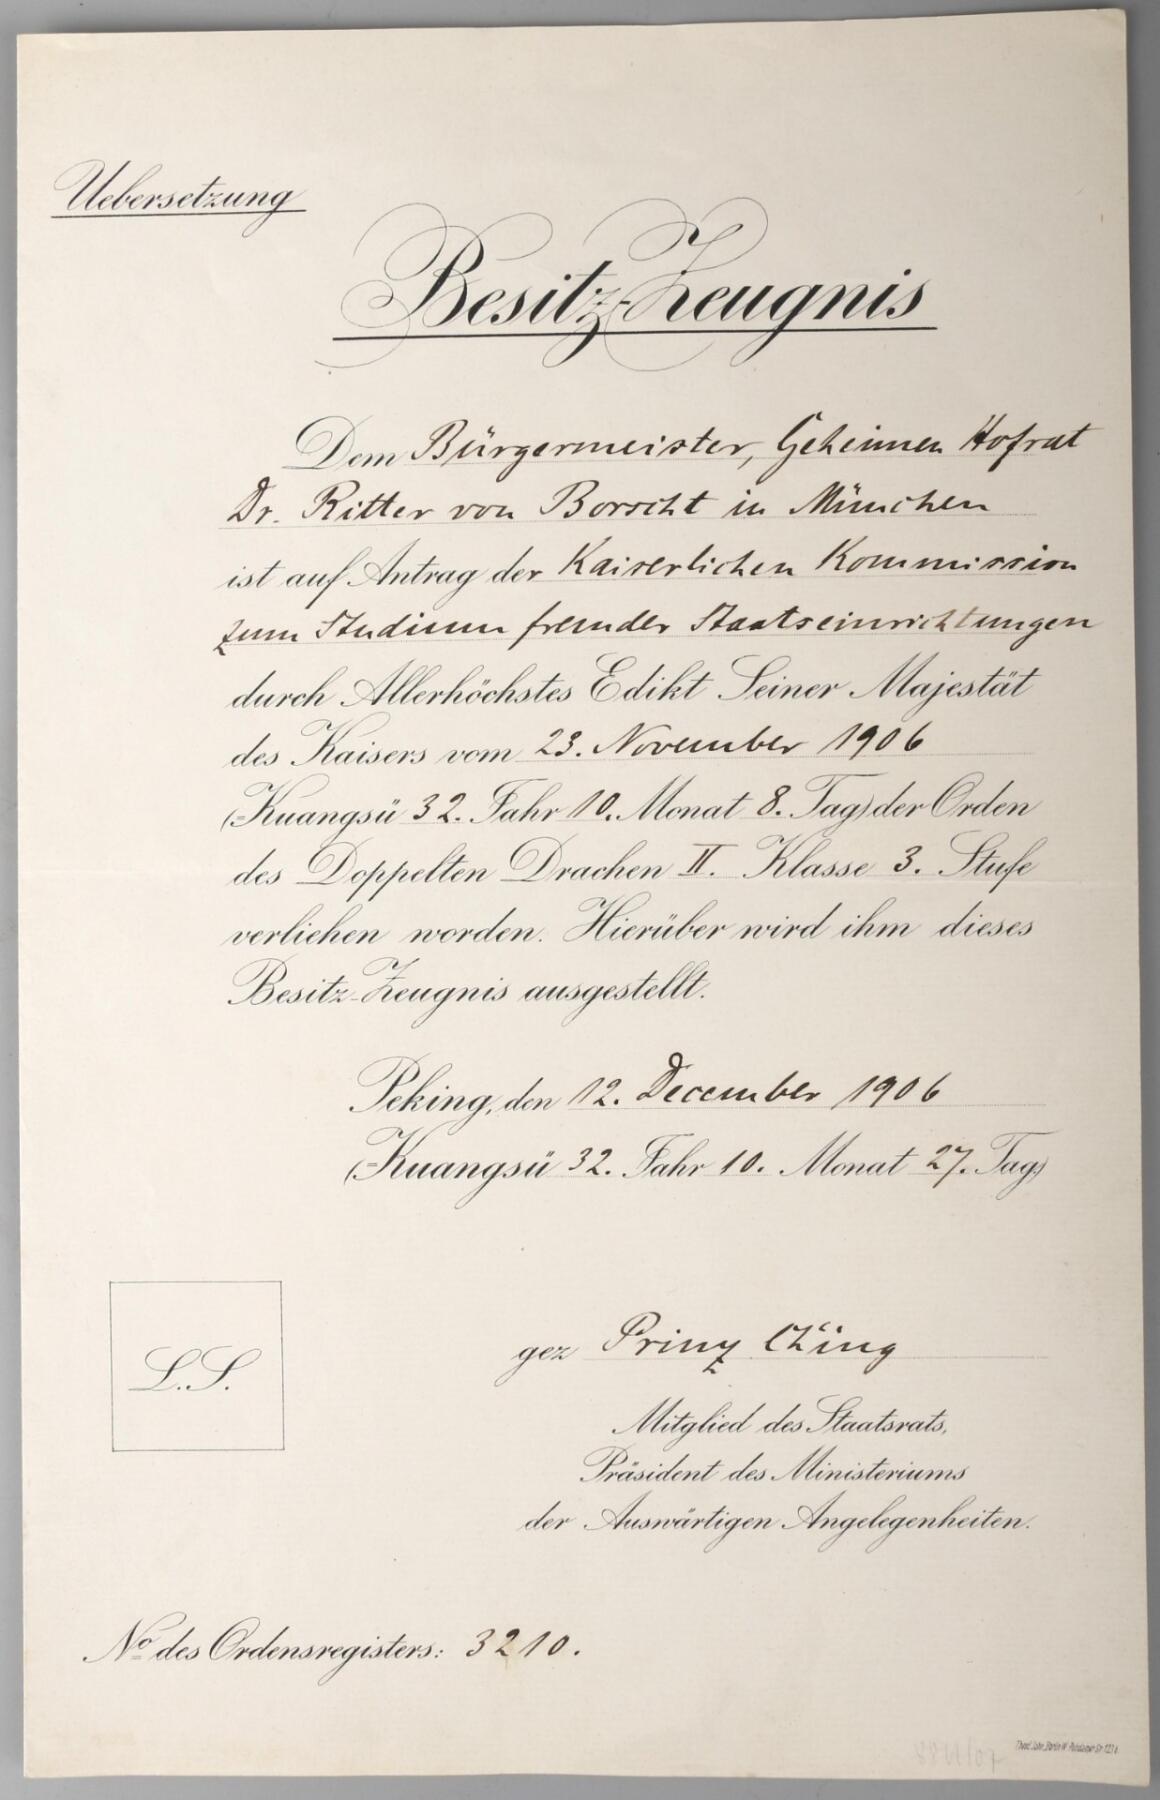 Uebersetzung
Besitz-Zeugnis
Dem Bürgermeister, Geheimen Hofrat
Dr. Ritter von Borscht in München
ist auf Antrag der Kaiserlichen Kommission
zum Studium fremder Staatseinrichtungen
durch Allerhöchstes Edikt Seiner Majestät
des Kaisers vom 23. November 1906
(=Kuangsü 32. Jahr 10. Monat 8. Tag) der Orden
des Doppelten Drachen II. Klasse 3. Stufe
verliehen worden. Hierüber wird ihm dieses
Besitz-Zeugnis ausgestellt.
Peking, den 12. December 1906
(=Kuangsü 32. Jahr 10. Monat 27. Tag)
L.S.
gez Prinz Ch'ing
Mitglied des Staatsrats,
Präsident des Ministeriums
der Auswärtigen Angelegenheiten.
No des Ordensregisters: 3210.